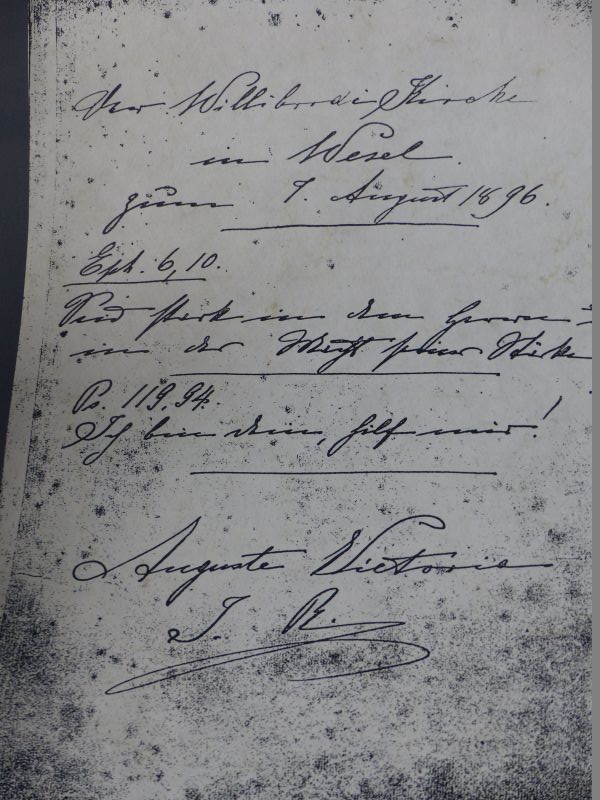 Der Willibrordi Kirche
in Wesel.
zum 7. August 1896.
Eph. 6,10.
Seid stark in dem Herrn
in der Macht seiner Stärke
Ps. 119,94.
Ich bin dein, hilf mir!
Auguste Victoria
I. R.